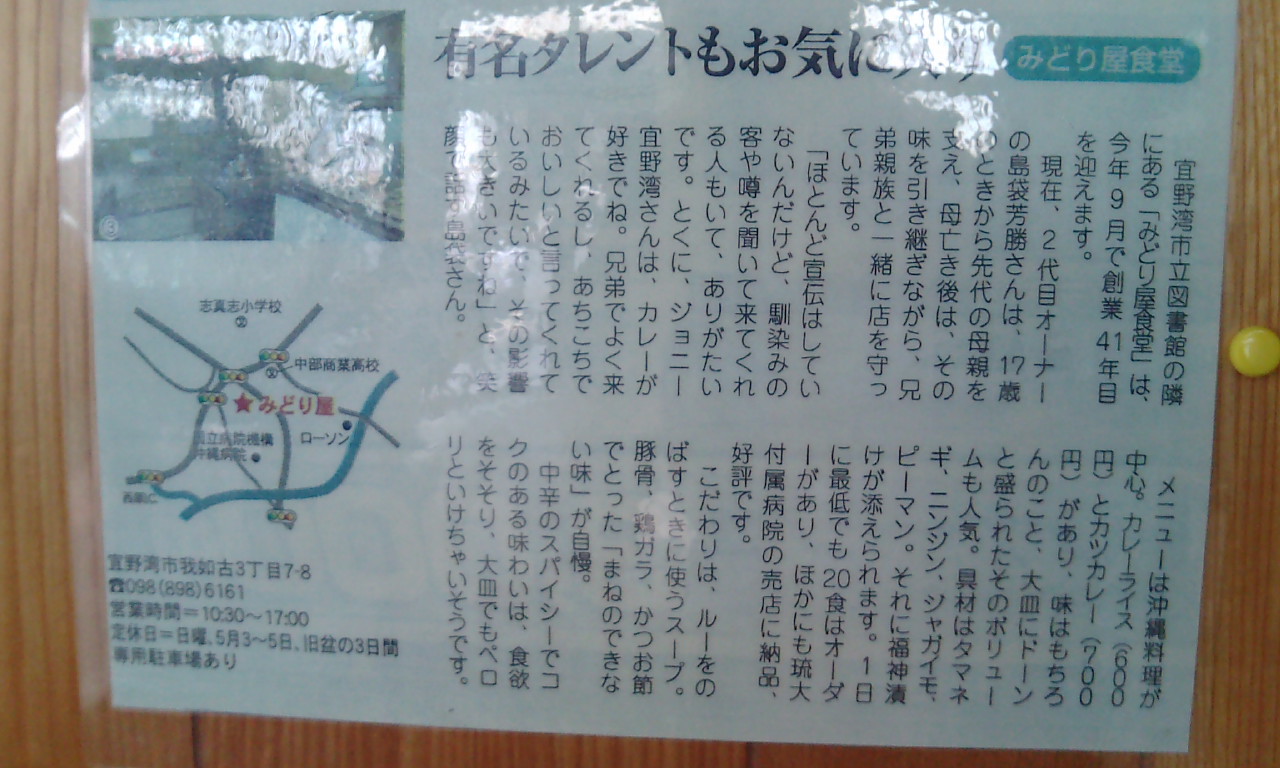 有名タレントもお気に入り
みどり屋食堂
宜野湾市立図書館の隣
にある「みどり屋食堂」は、
今年9月で創業41年目
を迎えます。
現在、2代目オーナー
の島袋芳勝さんは、17歳
のときから先代の母親を
支え、母亡き後は、その
味を引き継ぎながら、兄
弟親族と一緒に店を守っ
ています。
「ほとんど宣伝はしてい
ないんだけど、馴染みの
客や噂を聞いて来てくれ
る人もいて、ありがたい
です。とくに、ジョニー
宜野湾さんは、カレーが
好きでね。兄弟でよく来
てくれるし、あちこちで
おいしいと言ってくれて
いるみたいで、その影響
も大きいですね」と、笑
顔で話す島袋さん。
メニューは沖縄料理が
中心。カレーライス(600
円)とカツカレー(700
円)があり、味はもちろ
んのこと、大皿にドーン
と盛られたそのボリュー
ムも人気。具材はタマネ
ギ、ニンジン、ジャガイモ、
ピーマン。それに福神漬
けが添えられます。1日
に最低でも20食はオーダ
ーがあり、ほかにも琉大
付属病院の売店に納品、
好評です。
こだわりは、ルーをの
ばすときに使うスープ。
豚骨、鶏ガラ、かつお節
でとった「まねのできな
い味」が自慢。
中辛のスパイシーでコ
クのある味わいは、食欲
をそそり、大皿でもペロ
リといけちゃいそうです。
③
志真志小学校
中部商業高校
★みどり屋
ローソン
国立病院機構
沖縄病院
宜野湾市我如古3丁目7-8
☎098(898)6161
営業時間=10:30〜17:00
定休日=日曜、5月3〜5日、旧盆の3日間
専用駐車場あり